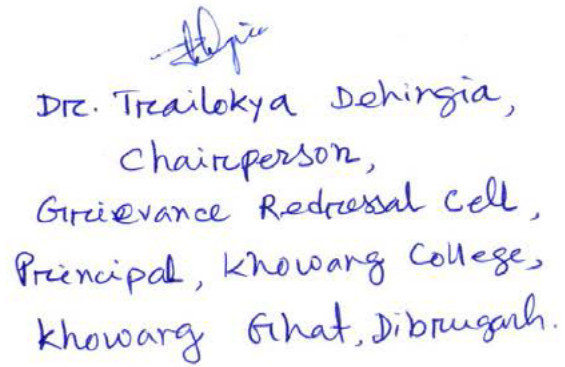 Dr. Trailokya Dehingia,
Chairperson,
Grievance Redressal Cell,
Principal, Khowang College,
Khowang Ghat, Dibrugarh.